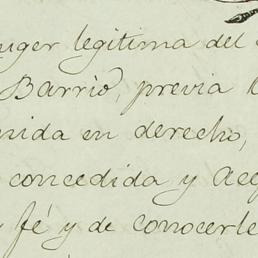 uger legitima del
Barrio, previa
nida en derecho,
concedida y
fé y de conocerle